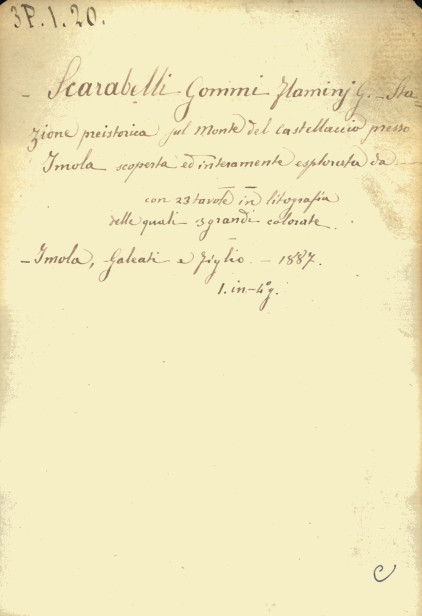 3P.1.20.
- Scarabelli Gommi Flaminj G. - Sta-
zione preistorica sul Monte del Castellaccio presso
Imola scoperta ed interamente esplorata da
con 23 tavole in litografia
delle quali 3 grandi colorate.
- Imola, Galeati e Figlio - 1887.
1. in-4°g.